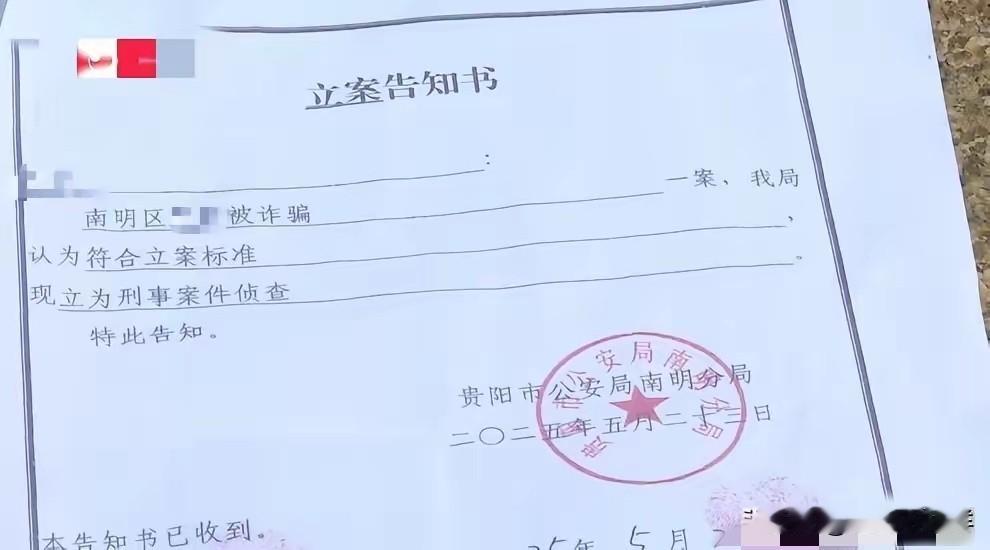 立案告知书
：
一案、我局
南明区 被诈骗
，
认为符合立案标准
。
现立为刑事案件侦查
特此告知。
贵阳市公安局南明分局
二〇二五年五月二十三日
贵阳市公安局南明分局
本告知书已收到。
25年5月